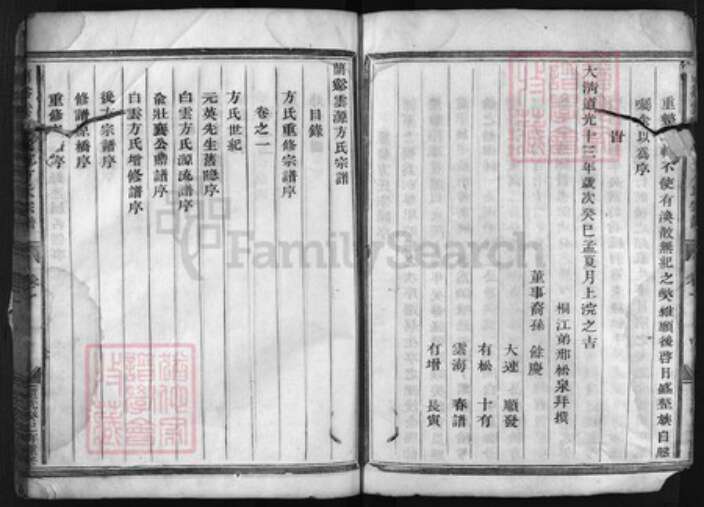 不使有渙散無紀之獘維願後啓目盛塋族自
以為序
旹
大清道光十三年歲次癸巳孟夏月上浣之吉
桐江弟邢松泉拜撰
董事裔孫 餘慶
大連 順發
有松 十有
雲海 春譜
有增 長寅
蘭谿雲源方氏宗譜
目錄
方氏重修宗譜序
卷之一
方氏世紀
元英先生舊隱序
白雲方氏源流譜序
僉壯襄公贈譜序
白雲方氏增修譜序
後方宗譜序
修譜原橋序
重修序
FamilySearch